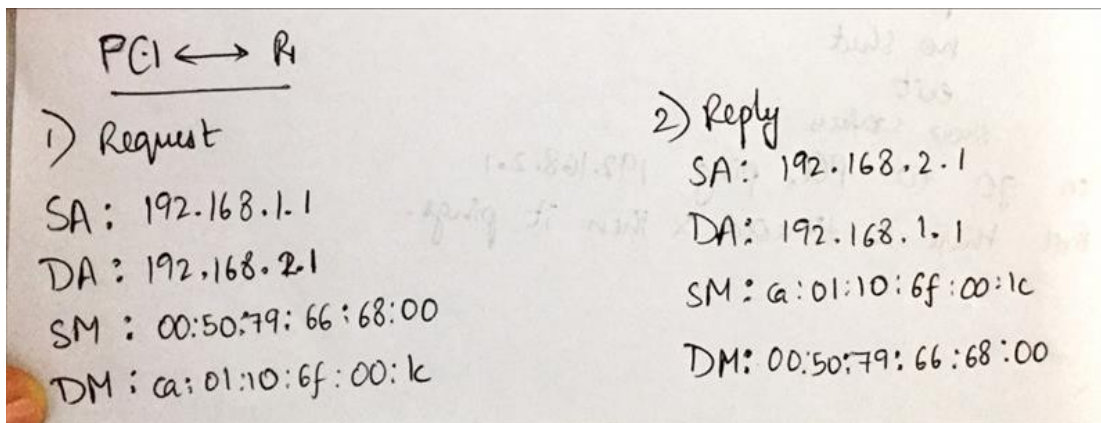 PC1 ↔ R1
1) Request
SA: 192.168.1.1
DA: 192.168.2.1
SM: 00:50:79:66:68:00
DM: ca:01:10:6f:00:1c
2) Reply
SA: 192.168.2.1
DA: 192.168.1.1
SM: ca:01:10:6f:00:1c
DM: 00:50:79:66:68:00